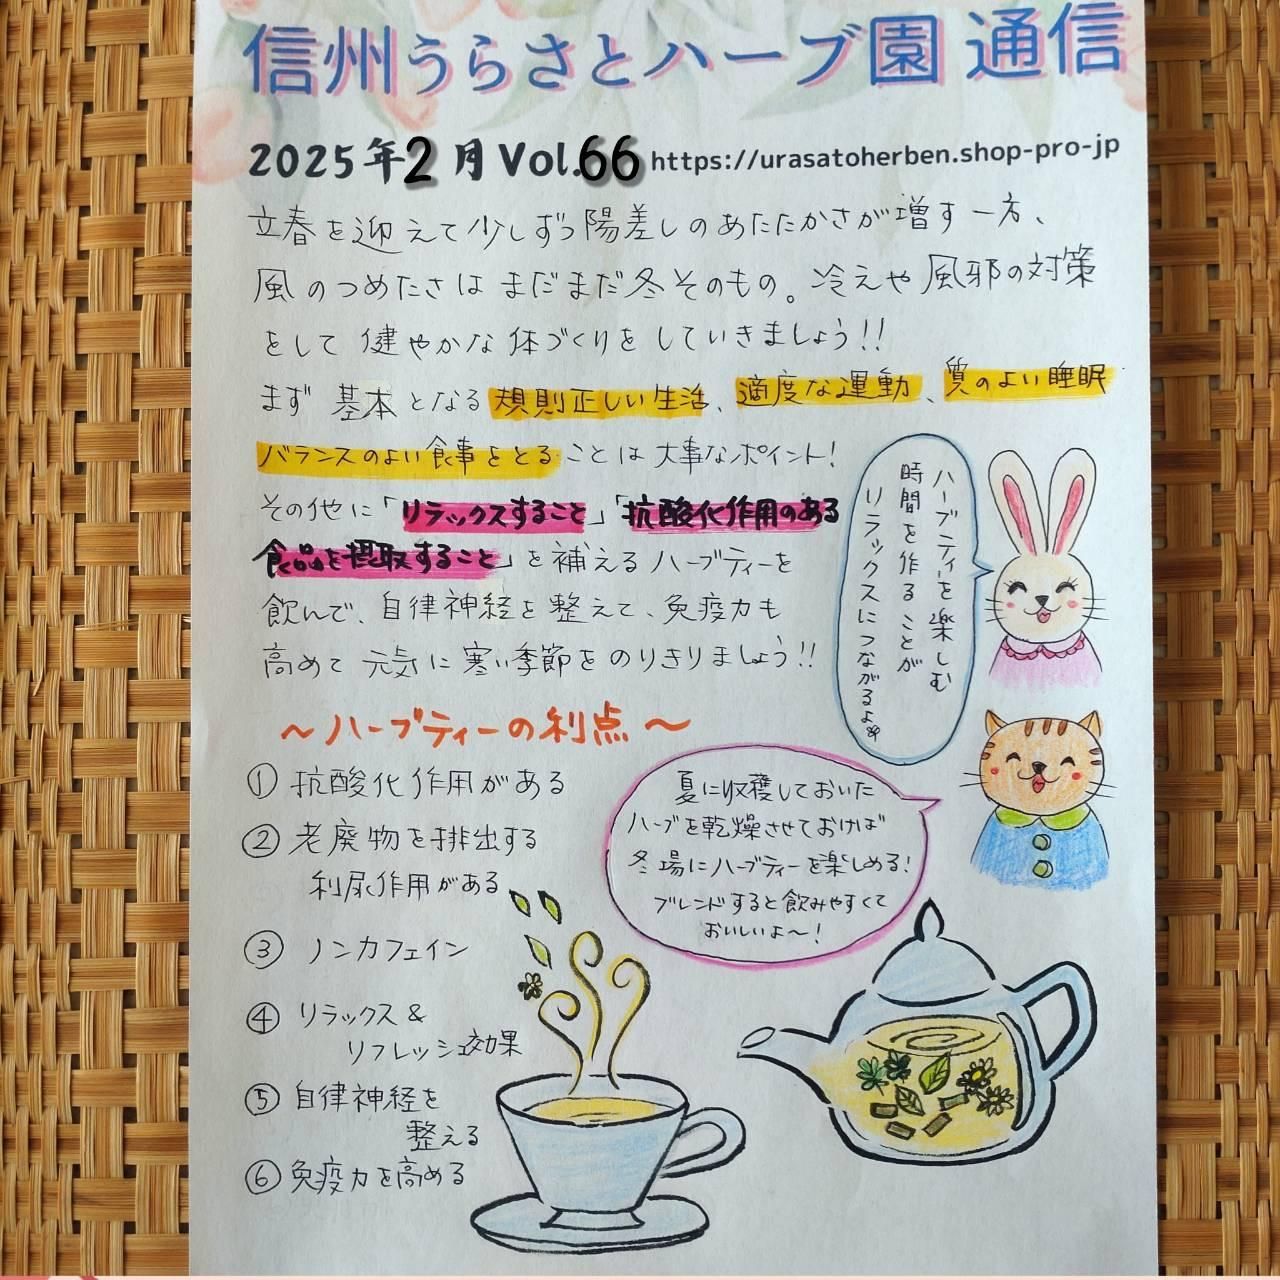 信州うらさとハーブ園 通信
2025年2月 Vol.66 https://urasatoherben.shop-pro-jp
立春を迎えて少しずつ陽差しのあたたかさが増す一方、
風のつめたさはまだまだ冬そのもの。冷えや風邪の対策
をして健やかな体づくりをしていきましょう!!
まず基本となる規則正しい生活、適度な運動、質のよい睡眠
バランスのよい食事をとることは大事なポイント!
その他に「リラックスすること」「抗酸化作用のある
食品を摂取すること」を補えるハーブティーを
飲んで、自律神経を整えて、免疫力も
高めて元気に寒い季節をのりきりましょう!!
ハーブティーを楽しむ
時間を作ることが
リラックスにつながるよ
〜ハーブティーの利点〜
① 抗酸化作用がある
② 老廃物を排出する
利尿作用がある
③ ノンカフェイン
④ リラックス&
リフレッシュ効果
⑤ 自律神経を
整える
⑥ 免疫力を高める
夏に収穫しておいた
ハーブを乾燥させておけば
冬場にハーブティーを楽しめる!
ブレンドすると飲みやすくて
おいしいよ〜!